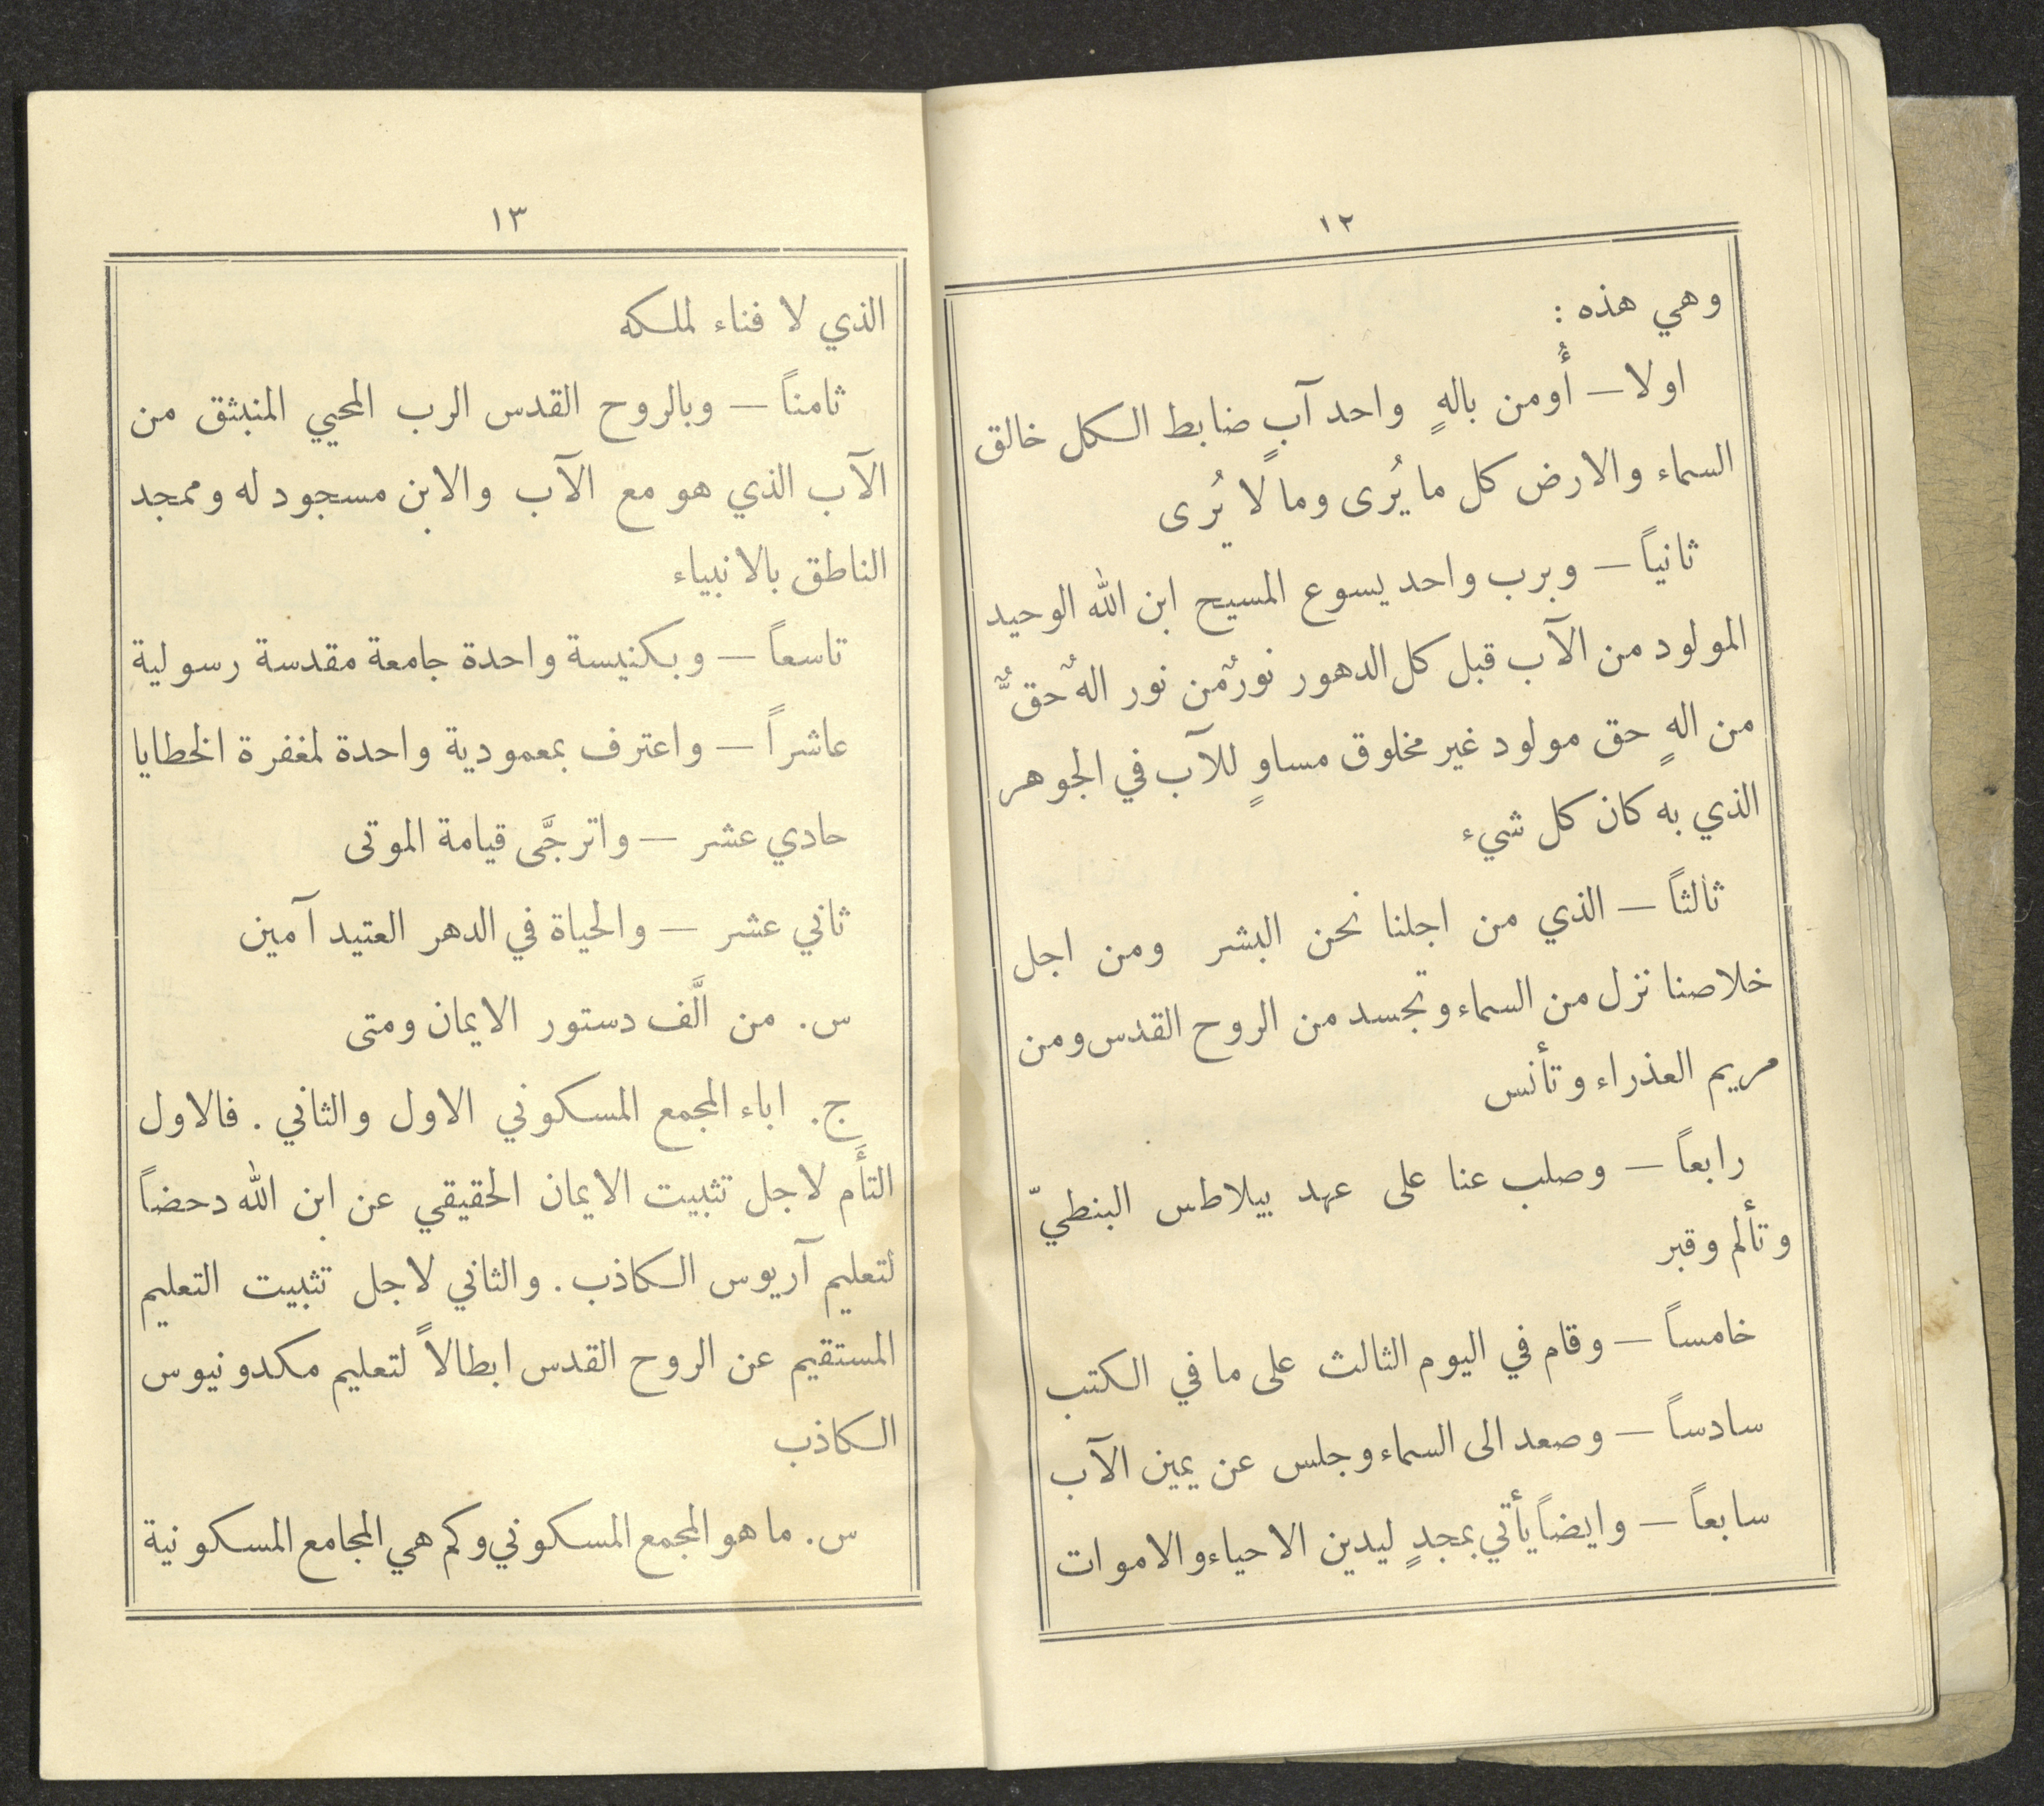 ١٢
وهي هذه :
اولا — أُومن بالهٍ واحد آبٍ ضابط الكل خالق
السماء والارض كل ما يُرى وما لا يُرى
ثانياً — وبرب واحد يسوع المسيح ابن الله الوحيد
المولود من الآب قبل كل الدهور نورٌ من نور الهٌ حقٌّ
من الهٍ حق مولود غير مخلوق مساوٍ للآب في الجوهر
الذي به كان كل شيء
ثالثاً — الذي من اجلنا نحن البشر ومن اجل
خلاصنا نزل من السماء وتجسد من الروح القدس ومن
مريم العذراء وتأنس
رابعاً — وصلب عنا على عهد بيلاطس البنطيّ
وتألم وقبر
خامساً — وقام في اليوم الثالث على ما في الكتب
سادساً — وصعد الى السماء وجلس عن يمين الآب
سابعاً — وايضاً يأتي بمجدٍ ليدين الاحياء والاموات
١٣
الذي لا فناء لملكه
ثامناً — وبالروح القدس الرب المحيي المنبثق من
الآب الذي هو مع الآب والابن مسجود له وممجد
الناطق بالانبياء
تاسعاً — وبكنيسة واحدة جامعة مقدسة رسولية
عاشراً — واعترف بمعمودية واحدة لمغفرة الخطايا
حادي عشر — واترجَّى قيامة الموتى
ثاني عشر — والحياة في الدهر العتيد آمين
س. من الَّف دستور الايمان ومتى
ج. اباء المجمع المسكوني الاول والثاني . فالاول
التأَم لاجل تثبيت الايمان الحقيقي عن ابن الله دحضاً
لتعليم آريوس الكاذب . والثاني لاجل تثبيت التعليم
المستقيم عن الروح القدس ابطالاً لتعليم مكدونيوس
الكاذب
س. ما هو المجمع المسكوني وكم هي المجامع المسكونية